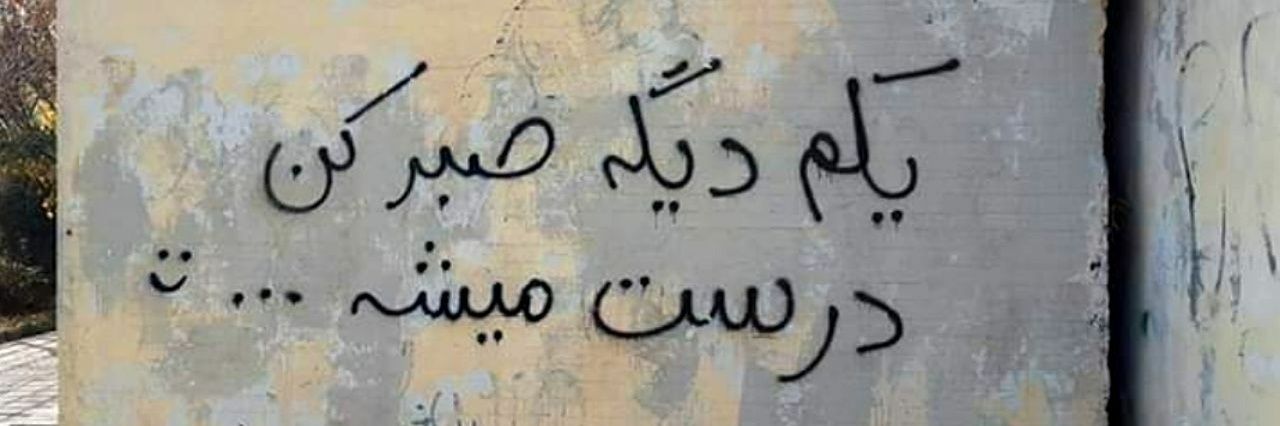 یکم دیگه صبر کن
درست میشه ... :)